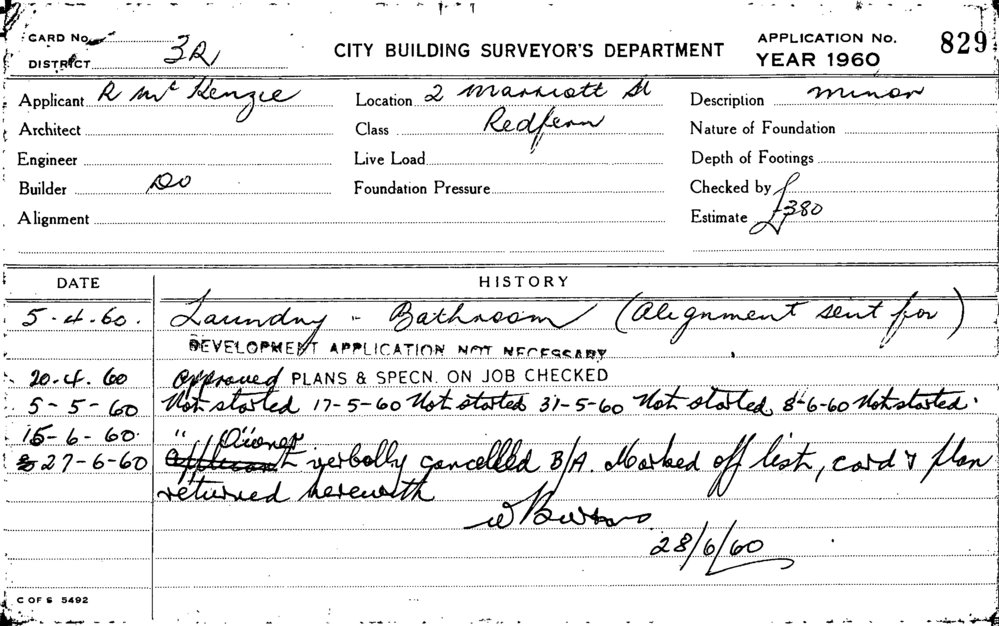 CARD No.
DISTRICT 3R
CITY BUILDING SURVEYOR'S DEPARTMENT
APPLICATION No. 829
YEAR 1960
Applicant R McKenzie
Location 2 Marriott St
Description minor
Architect
Class Redfern
Nature of Foundation
Engineer
Live Load
Depth of Footings
Builder Do
Foundation Pressure
Checked by
Alignment
Estimate £380
DATE HISTORY
5-4-60. Laundry - Bathroom (Alignment sent for)
DEVELOPMENT APPLICATION NOT NECESSARY
20.4.60 Approved PLANS & SPECN. ON JOB CHECKED
5-5-60 Not started 17-5-60 Not started 31-5-60 Not started 8-6-60 Not started.
15-6-60. " "
Owner
27-6-60 applicant verbally cancelled B/A. Marked off list, card & plan
returned herewith
W
28/6/60
C OF S 5492